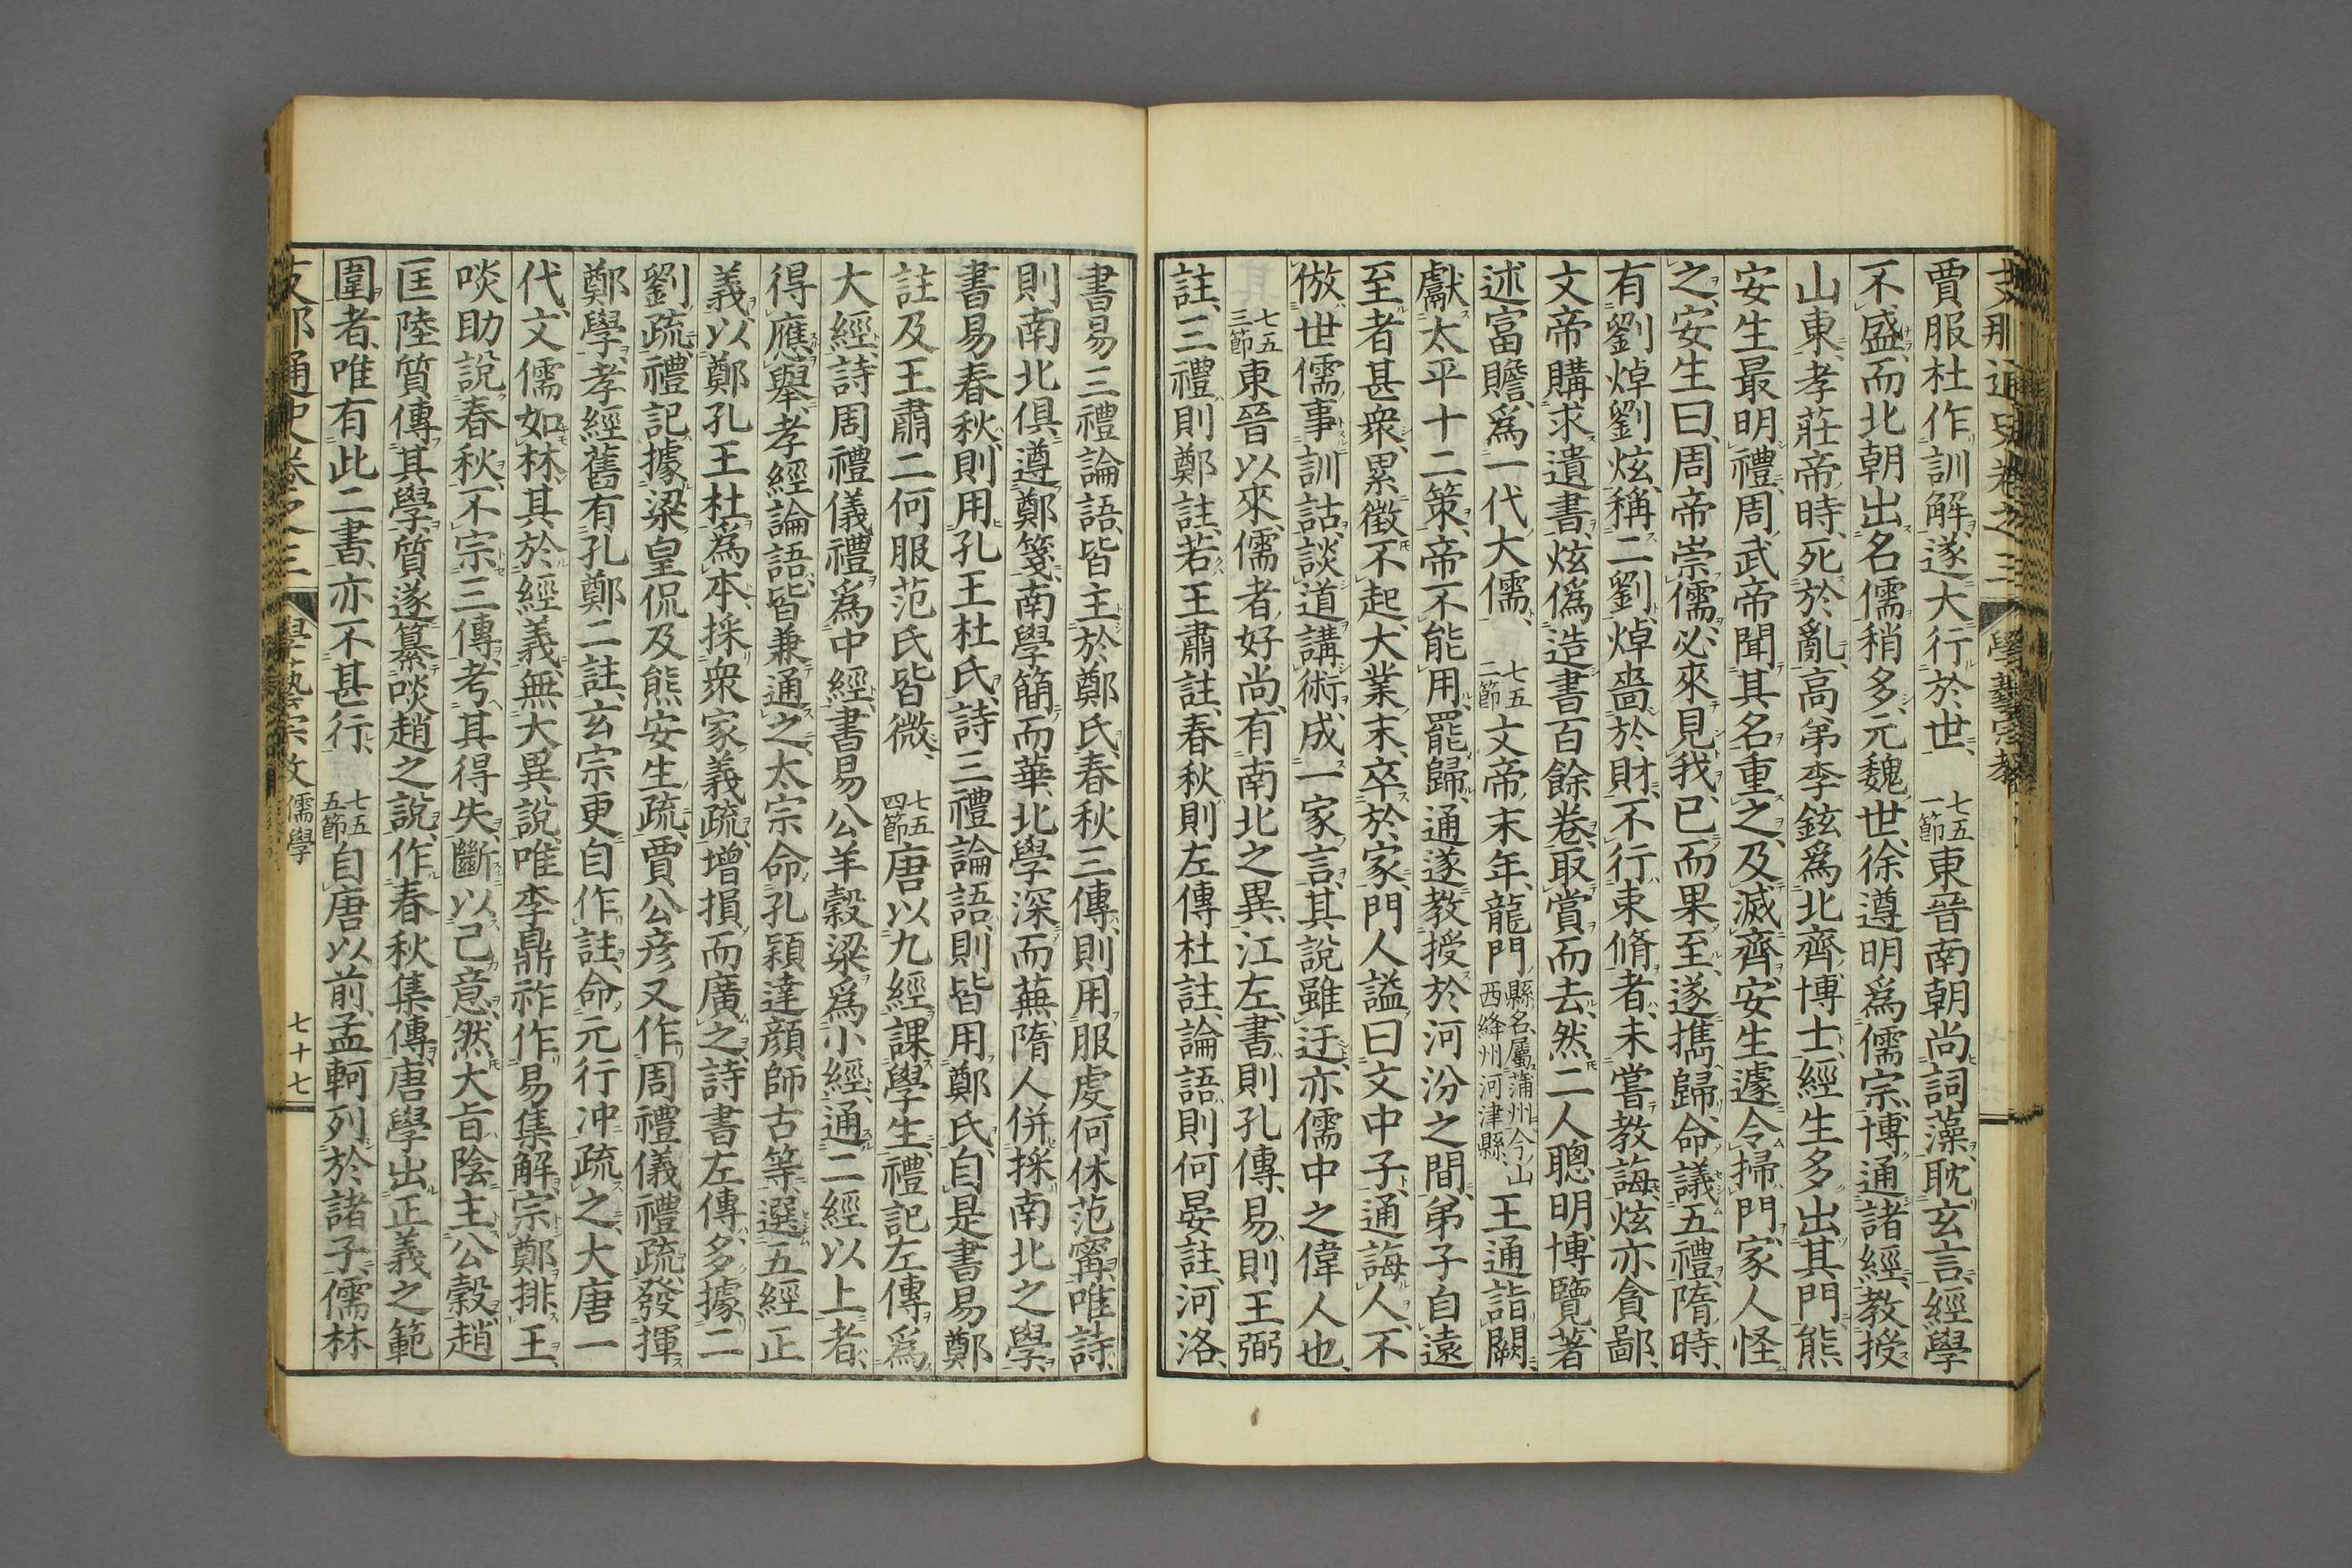 支那通史卷之三 學藝宗敎
賈服杜作訓解遂大行於世、七五一節東晉南朝尚詞藻、耽玄言、經學
不盛、而北朝出名儒稍多、元魏世、徐遵明爲儒宗、博通諸經、教授
山東、孝莊帝時、死於亂、高弟李鉉爲北齊博士、經生多出其門、熊
安生最明禮、周武帝聞其名重之、及滅齊、安生遽令掃門、家人怪
之、安生曰、周帝崇儒、必來見我、已而果至、遂攜歸、命議五禮、隋時、
有劉焯劉炫、稱二劉、焯嗇於財、不行束脩者、未嘗教誨、炫亦貪鄙、
文帝購求遺書、炫僞造書百餘卷、取賞而去、然二人聰明博覽、著
述富贍、爲一代大儒、七五二節文帝末年、龍門縣名、屬蒲州、今山西絳州河津縣、王通詣闕、
獻太平十二策、帝不能用、罷歸、通遂教授於河汾之間、弟子自遠
至者甚衆、累徵不起、大業末、卒於家、門人謚曰文中子、通誨人、不
倣世儒事訓詁、談道講術、成一家言、其說雖迂、亦儒中之偉人也、
七五三節東晉以來、儒者好尚、有南北之異、江左、書則孔傳、易則王弼
註、三禮則鄭註、若王肅註、春秋則左傳杜註、論語則何晏註、河洛、
書易三禮論語、皆主於鄭氏、春秋三傳、則用服虔何休范甯、唯詩、
則南北俱遵鄭箋、南學簡而華、北學深而蕪、隋人併採南北之學、
書易春秋、則用孔王杜氏、詩三禮論語、則皆用鄭氏、自是書易鄭
註及王肅二何服范氏皆微、七五四節唐以九經課學生、禮記左傳爲
大經、詩周禮儀禮爲中經、書易公羊穀梁爲小經、通二經以上者、
得應舉、孝經論語、皆兼通之、太宗命孔穎達顏師古等、選五經正
義、以鄭孔王杜爲本、採衆家義疏、增損而廣之、詩書左傳、多據二
劉疏、禮記據梁皇侃及熊安生疏、賈公彦又作周禮儀禮疏、發揮
鄭學、孝經舊有孔鄭二註、玄宗更自作註、命元行冲疏之、大唐一
代、文儒如林、其於經義、無大異說、唯李鼎祚作易集解、宗鄭排王、
啖助說春秋、不宗三傳、考其得失、斷以己意、然大旨陰主公穀、趙
匡陸質傳其學、質遂纂啖趙之說、作春秋集傳、唐學出正義之範
圍者、唯有此二書、亦不甚行、七五五節自唐以前、孟軻列於諸子、儒林
支那通史卷之三 學藝宗敎 儒學 七十七